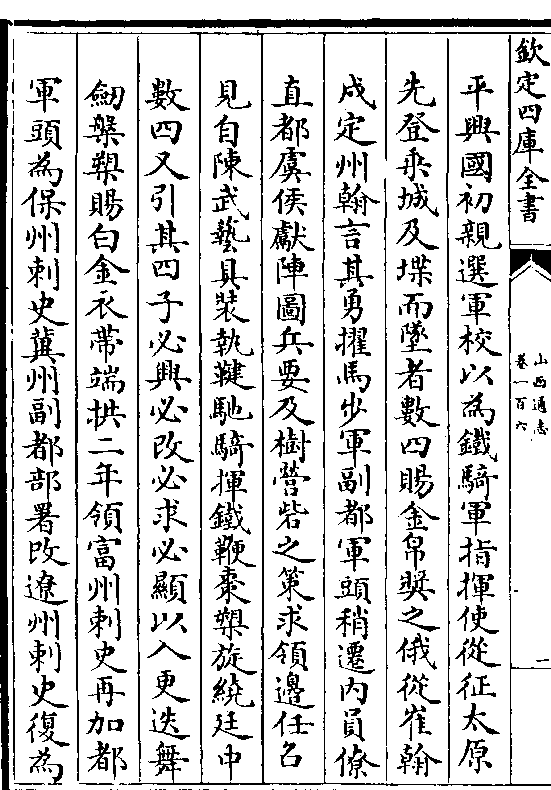 欽定四庫全書
山西通志
卷一百六
一
平興國初親選軍校以為鐵騎軍指揮使從征太原
先登乘城及堞而墜者數四賜金帛奬之俄從崔翰
戍定州翰言其勇擢馬步軍副都軍頭稍遷内員僚
直都虞侯獻陣圖兵要及樹營砦之策求領邊任召
見自陳武藝具裝執鞬馳騎揮鐵鞭棗槊旋繞廷中
數四又引其四子必興必改必求必顯以入更迭舞
劒槃槊賜白金衣帶端拱二年領富州刺史再加都
軍頭為保州刺史冀州副都部署改遼州刺史復為